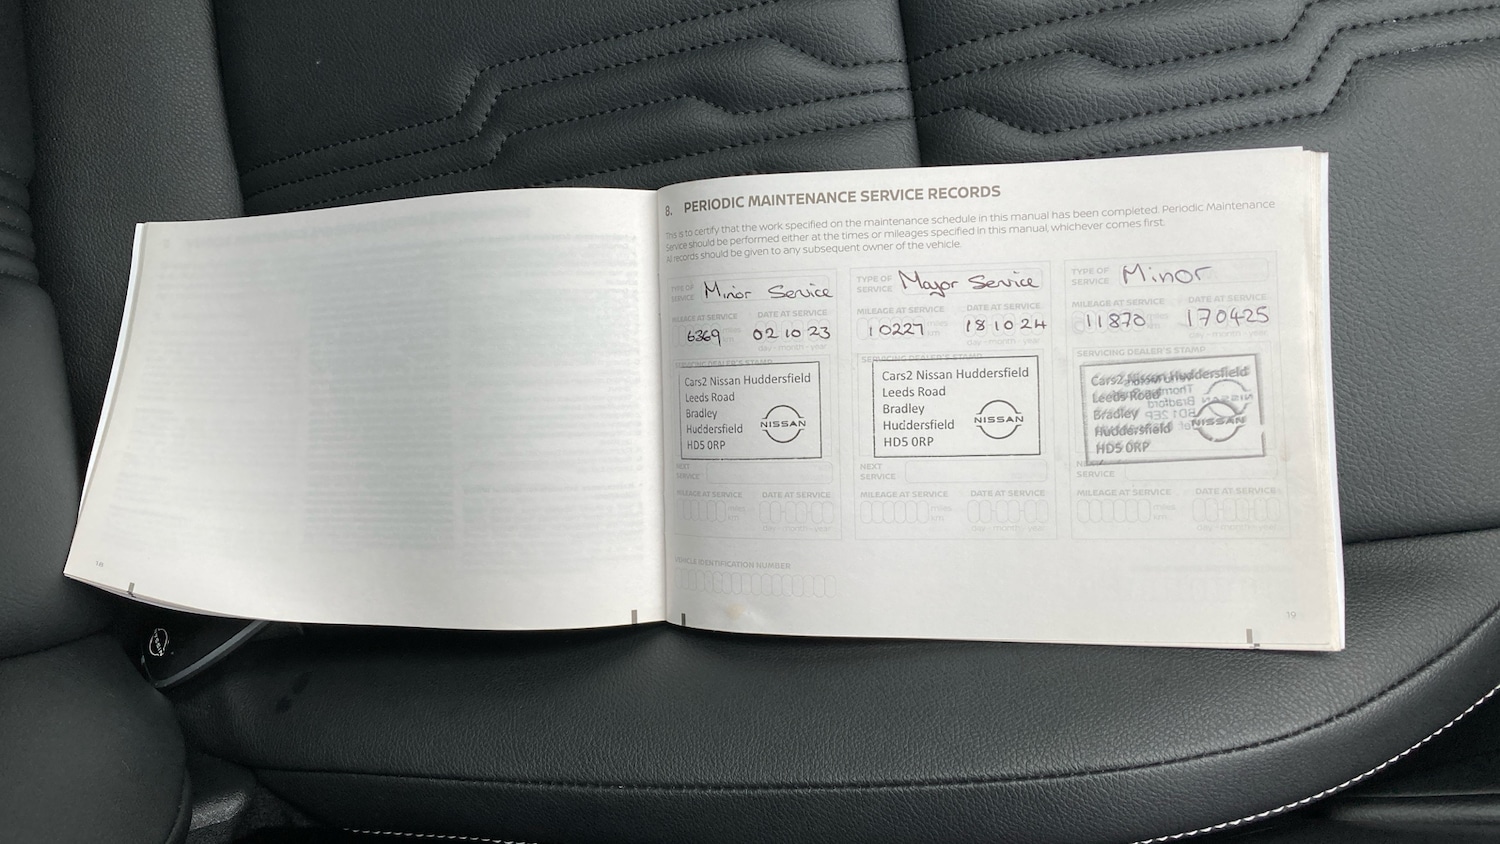 8. PERIODIC MAINTENANCE SERVICE RECORDS
This is to certify that the work specified on the maintenance schedule in this manual has been completed. Periodic Maintenance
Service should be performed either at the times or mileages specified in this manual, whichever comes first.
All records should be given to any subsequent owner of the vehicle.
TYPE OF SERVICE Minor Service
MILEAGE AT SERVICE DATE AT SERVICE
6369 miles km 02 10 23
day - month - year
SERVICING DEALER'S STAMP
Cars2 Nissan Huddersfield
Leeds Road
Bradley
Huddersfield
HD5 0RP
NISSAN
NEXT SERVICE
MILEAGE AT SERVICE DATE AT SERVICE
miles km
day - month - year
TYPE OF SERVICE Major Service
MILEAGE AT SERVICE DATE AT SERVICE
10227 miles km 18 10 24
day - month - year
SERVICING DEALER'S STAMP
Cars2 Nissan Huddersfield
Leeds Road
Bradley
Huddersfield
HD5 0RP
NISSAN
NEXT SERVICE
MILEAGE AT SERVICE DATE AT SERVICE
miles km
day - month - year
TYPE OF SERVICE Minor
MILEAGE AT SERVICE DATE AT SERVICE
11870 miles km 170425
day - month - year
SERVICING DEALER'S STAMP
Cars2 Nissan Huddersfield
Leeds Road
Bradley
Huddersfield
HD5 0RP
NISSAN
NEXT SERVICE
MILEAGE AT SERVICE DATE AT SERVICE
miles km
day - month - year
VEHICLE IDENTIFICATION NUMBER
19
18
NISSAN